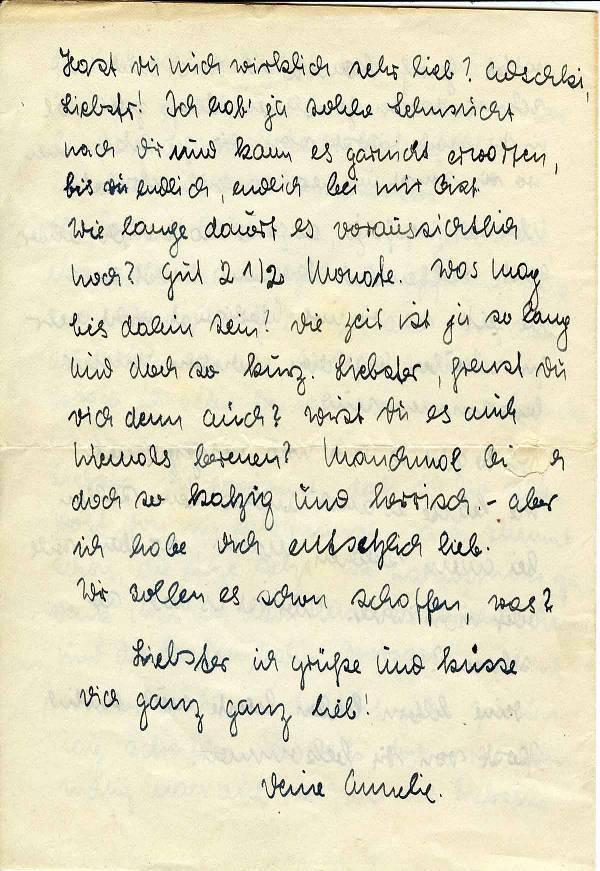 Hast du mich wirklich sehr lieb? Adschki,
Liebster! Ich hab' ja solche Sehnsucht
nach dir und kann es garnicht erwarten,
bis du endlich, endlich bei mir bist
Wie lange dauert es voraussichtlich
noch? Gut 2 1/2 Monate. Was mag
bis dahin sein? Die Zeit ist ja so lang
und doch so kurz. Liebster, freust du
dich denn auch? Wirst du es auch
niemals bereuen? Manchmal bi h
doch so kratzig und herrisch. - aber
ich habe dich entsetzlich lieb.
Wir wollen es schon schaffen, was?
Liebster ich grüße und küsse
dich ganz ganz lieb!
Deine Annelie.